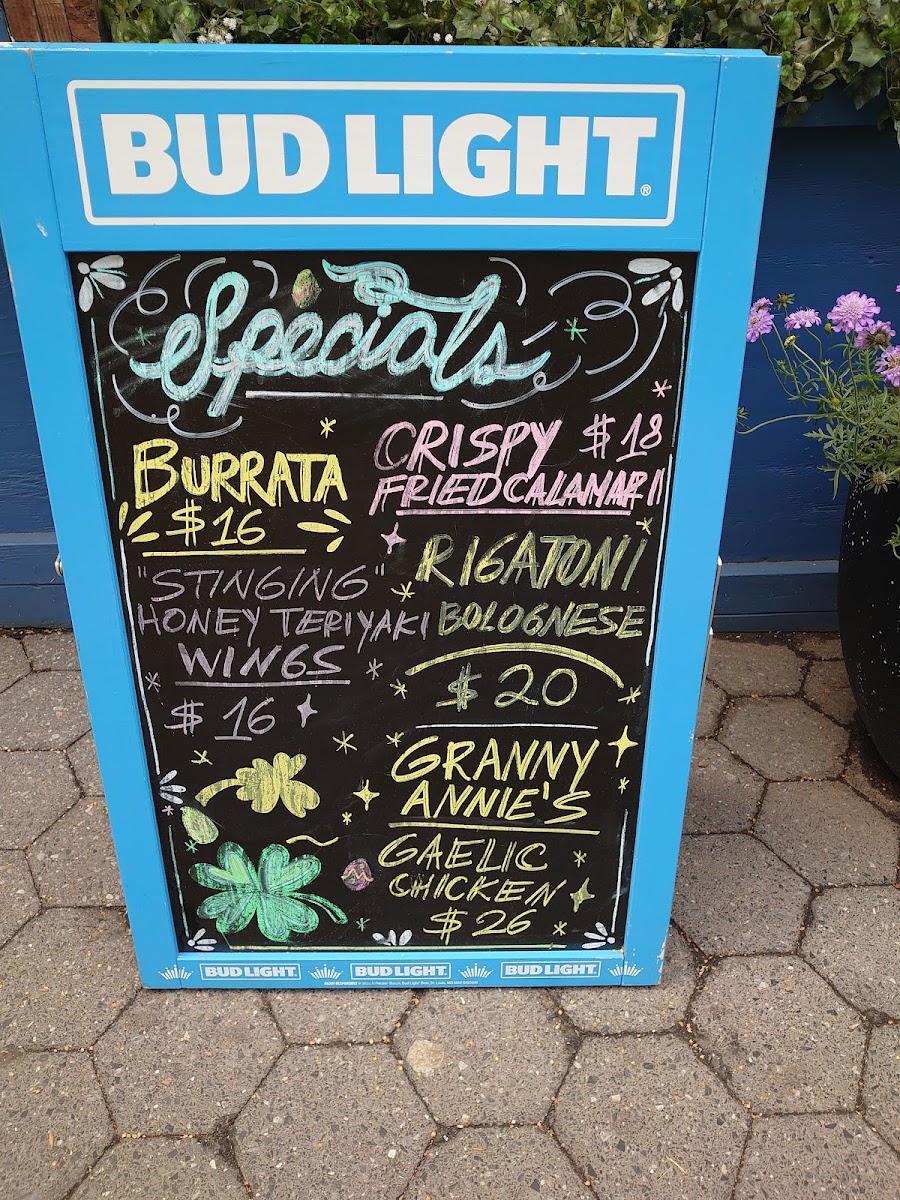 BUD LIGHT®
Specials
BURRATA
$16
"STINGING"
HONEY TERIYAKI
WINGS
$16
CRISPY $18
FRIED CALAMARI
RIGATONI
BOLOGNESE
$20
GRANNY
ANNIE'S
GAELIC
CHICKEN
$26
BUD LIGHT. BUD LIGHT. BUD LIGHT.